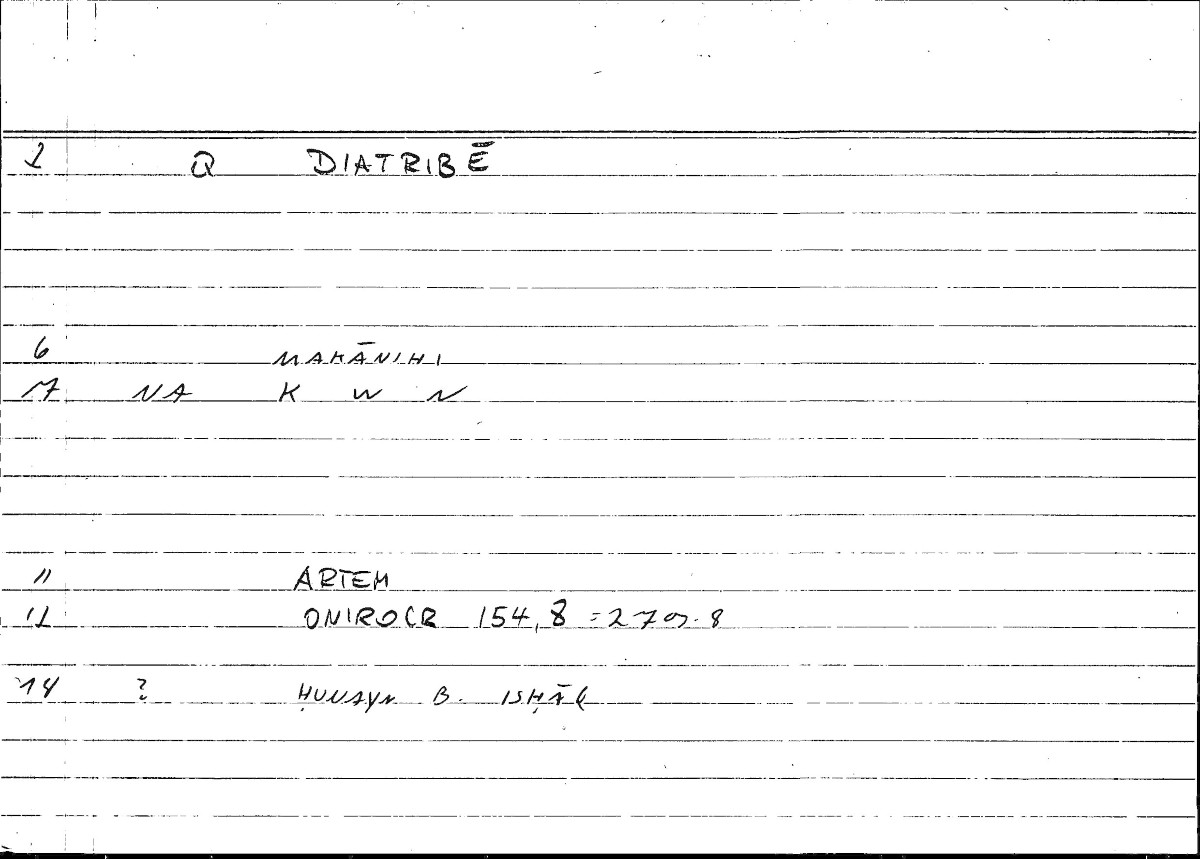 1 Q DIATRIBĒ
6 MAKĀNIHI
17 NA K W N
11 ARTEM
12 ONIROCR 154,8 = 270,8
14 ? ḤUNAYN B. ISḤĀQ